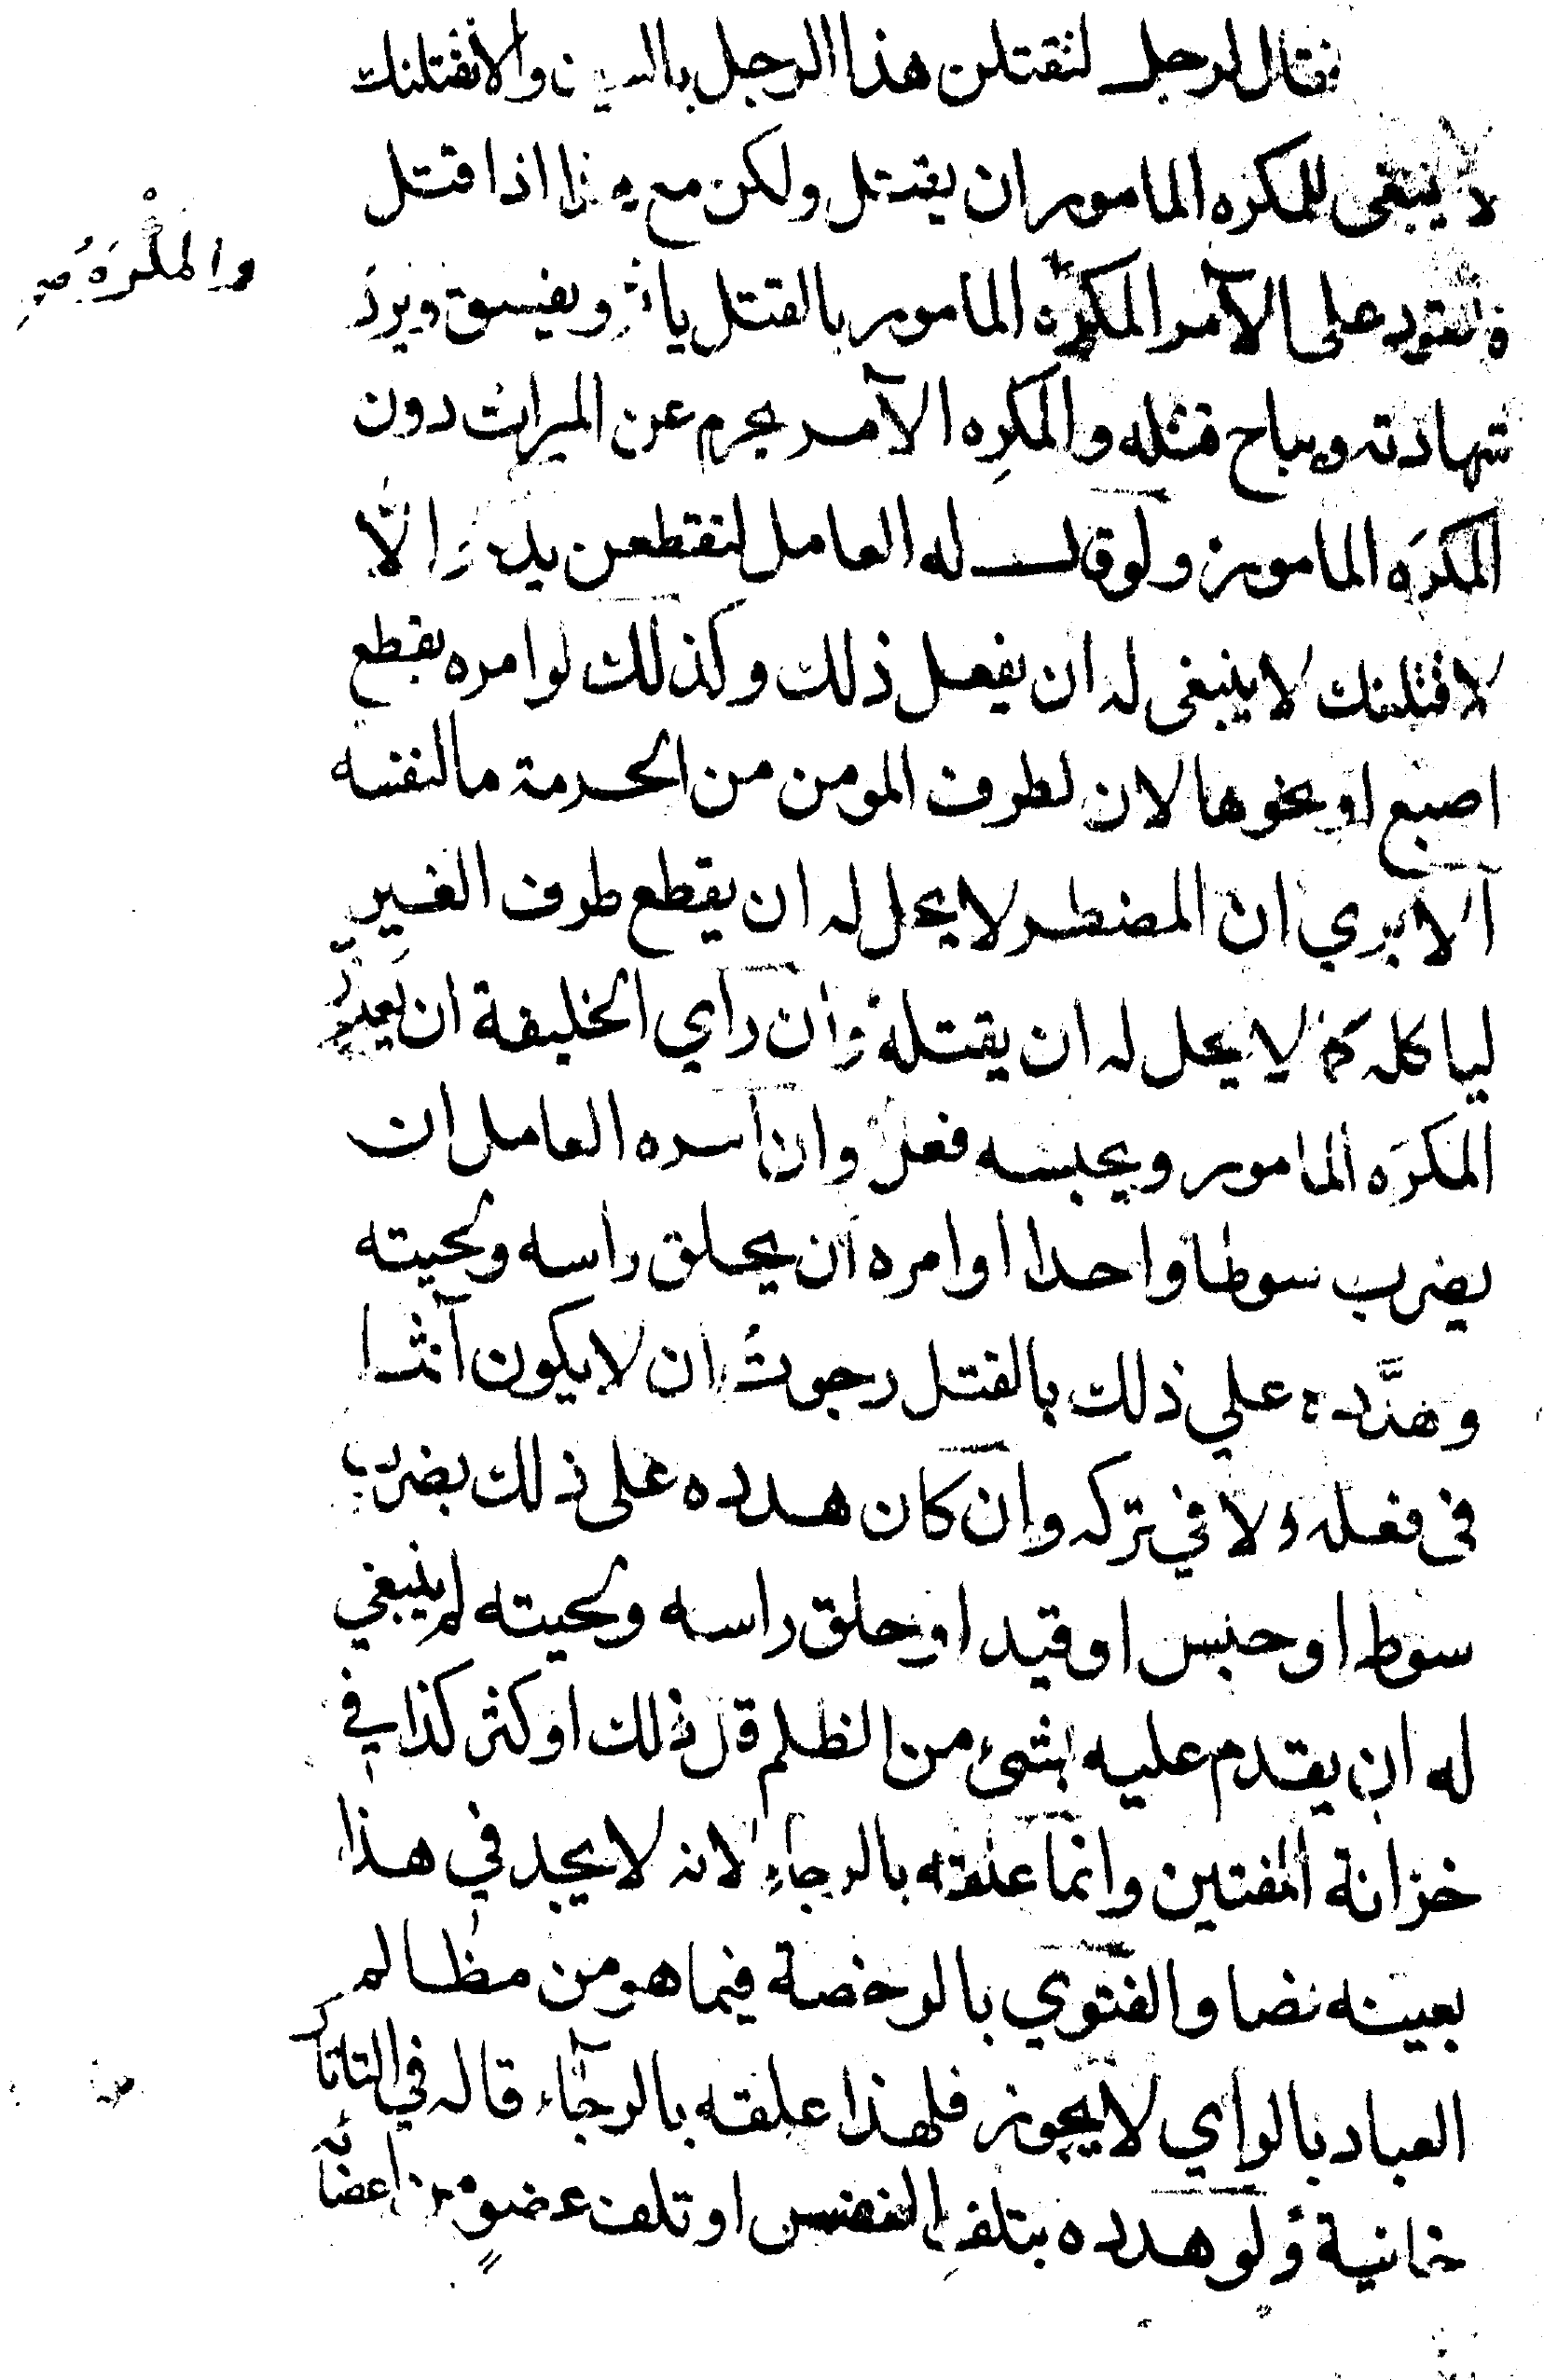 فقال لرجل لتقتلن هذا الرجل بالسيف والا نقتلنك
لا ينبغي للمكره المامور ان يقتل ولكن مع هذا اذا قتل
فالقود على الآمر المكره المامور بالقتل ياثم ويفسق ويرد
والمكرَهُ صح
شهادته ويباح قتله والمكرِه الآمر يحرم عن الميراث دون
المكرَه المامور ولو قال له العامل لتقطعن يده والّا
لاقتلنك لا ينبغي له ان يفعل ذلك وكذلك لو امره بقطع
اصبع او نحوها لان لطرف المومن من الحرمة ما لنفسه
ألا يري ان المضطر لا يحل له ان يقطع طرف الغير
لياكله كما لا يحل له ان يقتله وان راي الخليفة ان يعزر
المكرَه المامور ويحبسه فعل وان امره العامل ان
يضرب سوطا واحدا او امره ان يحلق راسه ولحيته
وهدَّده علي ذلك بالقتل رجوتُ ان لا يكون آثما
في فعله ولا في تركه وان كان هدده على ذلك بضرب
سوط او حبس او قيد او حلق راسه ولحيته لم ينبغي
له ان يقدم عليه بشئ من الظلم قل ذلك او كثر كذا في
خزانة المفتين وانما علقه بالرجاء لانه لا يجد في هذا
بعينه نصا والفتوي بالرخصة فيما هو من مظالم
العباد بالراي لا يجوز فلهذا علقه بالرجآء قاله في التاتار
خانية ولو هدده بتلف النفس او تلف عضوٍ من اعضائه